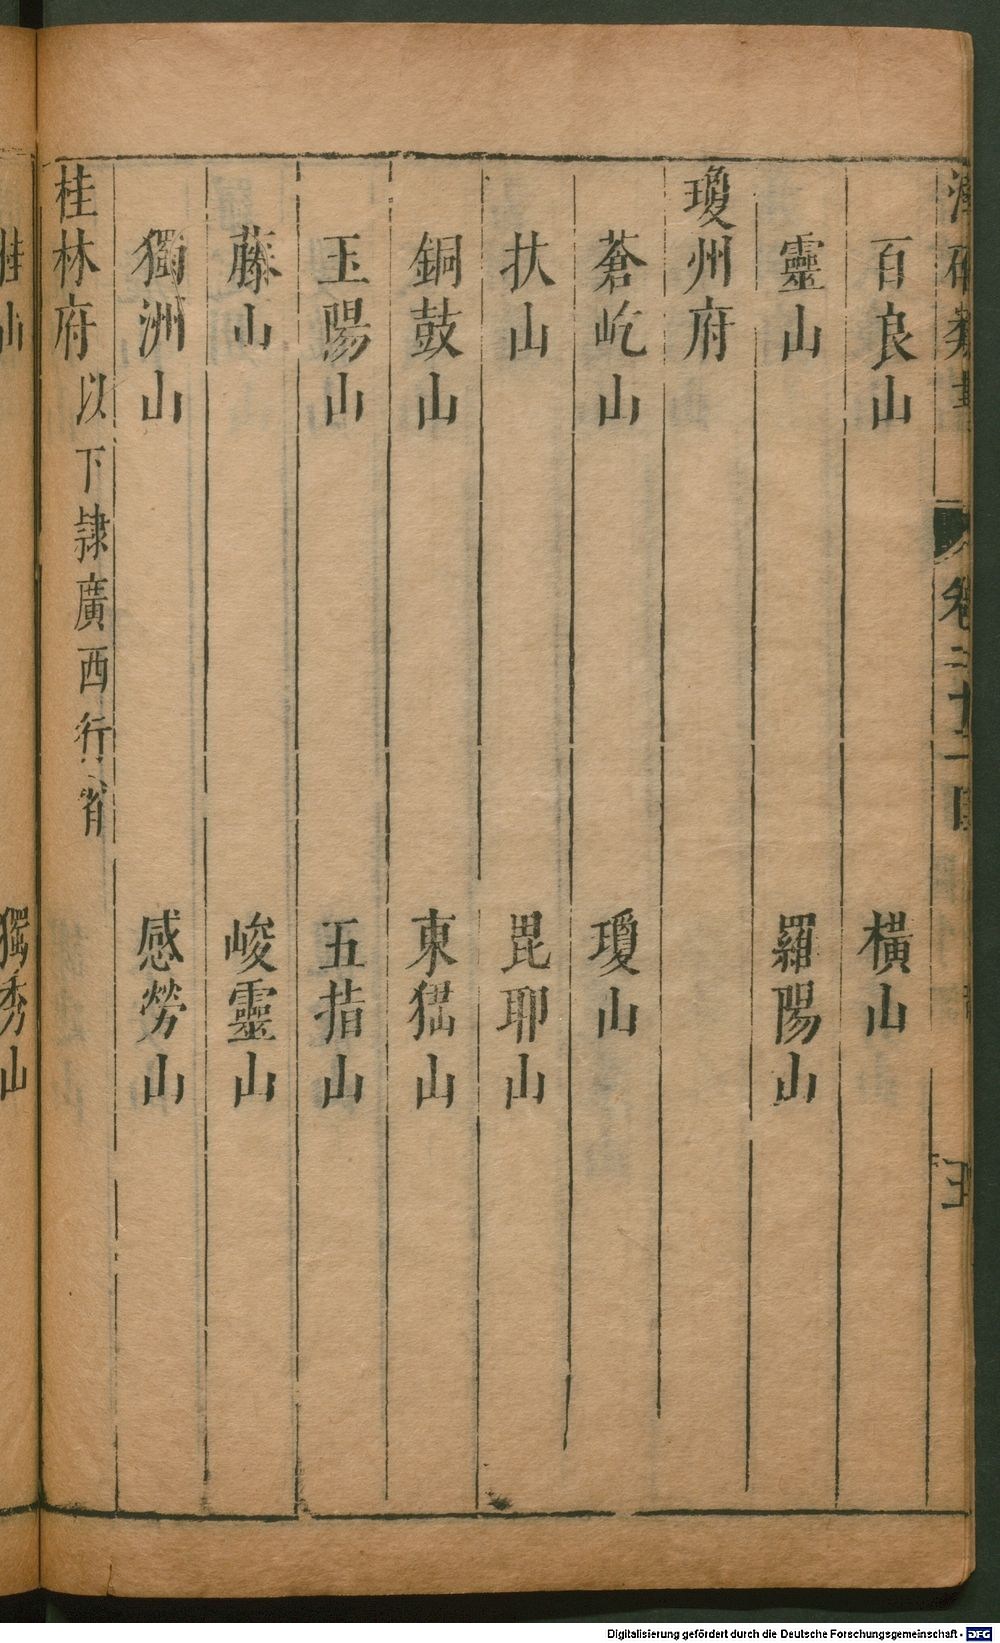 卷二十二
百良山　橫山
靈山　羅陽山
瓊州府
蒼屹山　瓊山
扶山　毘耶山
銅鼓山　東猫山
玉陽山　五指山
藤山　峻靈山
獨洲山　感勞山
桂林府以下隷廣西行省
桂山　獨秀山
Digitalisierung gefördert durch die Deutsche Forschungsgemeinschaft - DFG